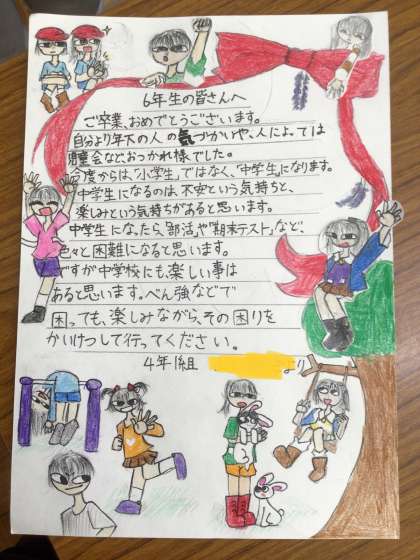 6年生の皆さんへ
ご卒業、おめでとうございます。
自分より年下の人の気づかいや、人によっては
児童会などおつかれ様でした。
今度からは、"小学生"ではなく、"中学生"になります。
中学生になるのは、不安という気持ちと、
楽しみという気持ちがあると思います。
中学生になったら、"部活"や"期末テスト"など、
色々と困難になると思います。
ですが中学校にも楽しい事は
あると思います。べん強などで
困っても、楽しみながら、その困りを
かいけつして行ってください。
4年1組
より